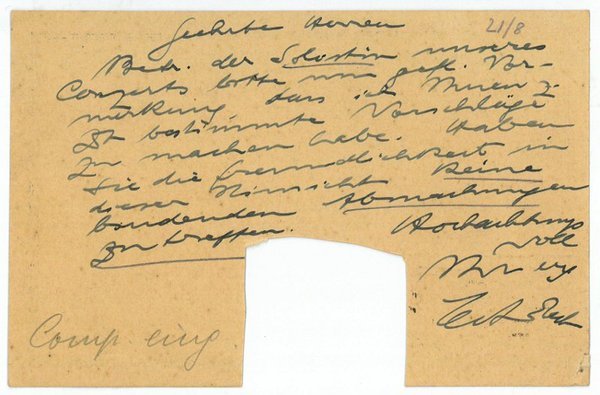 21/8
Geehrte Herren
Betr. der Solistin unseres
Conzerts bitte um gefl. Vor-
merkung dass ich Ihnen z.
Zt bestimmte Vorschläge
zu machen habe. Haben
Sie die Freundlichkeit in
dieser Hinsicht keine
bindenden Abmachungen
zu treffen.
Hochachtungs
voll
Ihr erg
Comp. eing